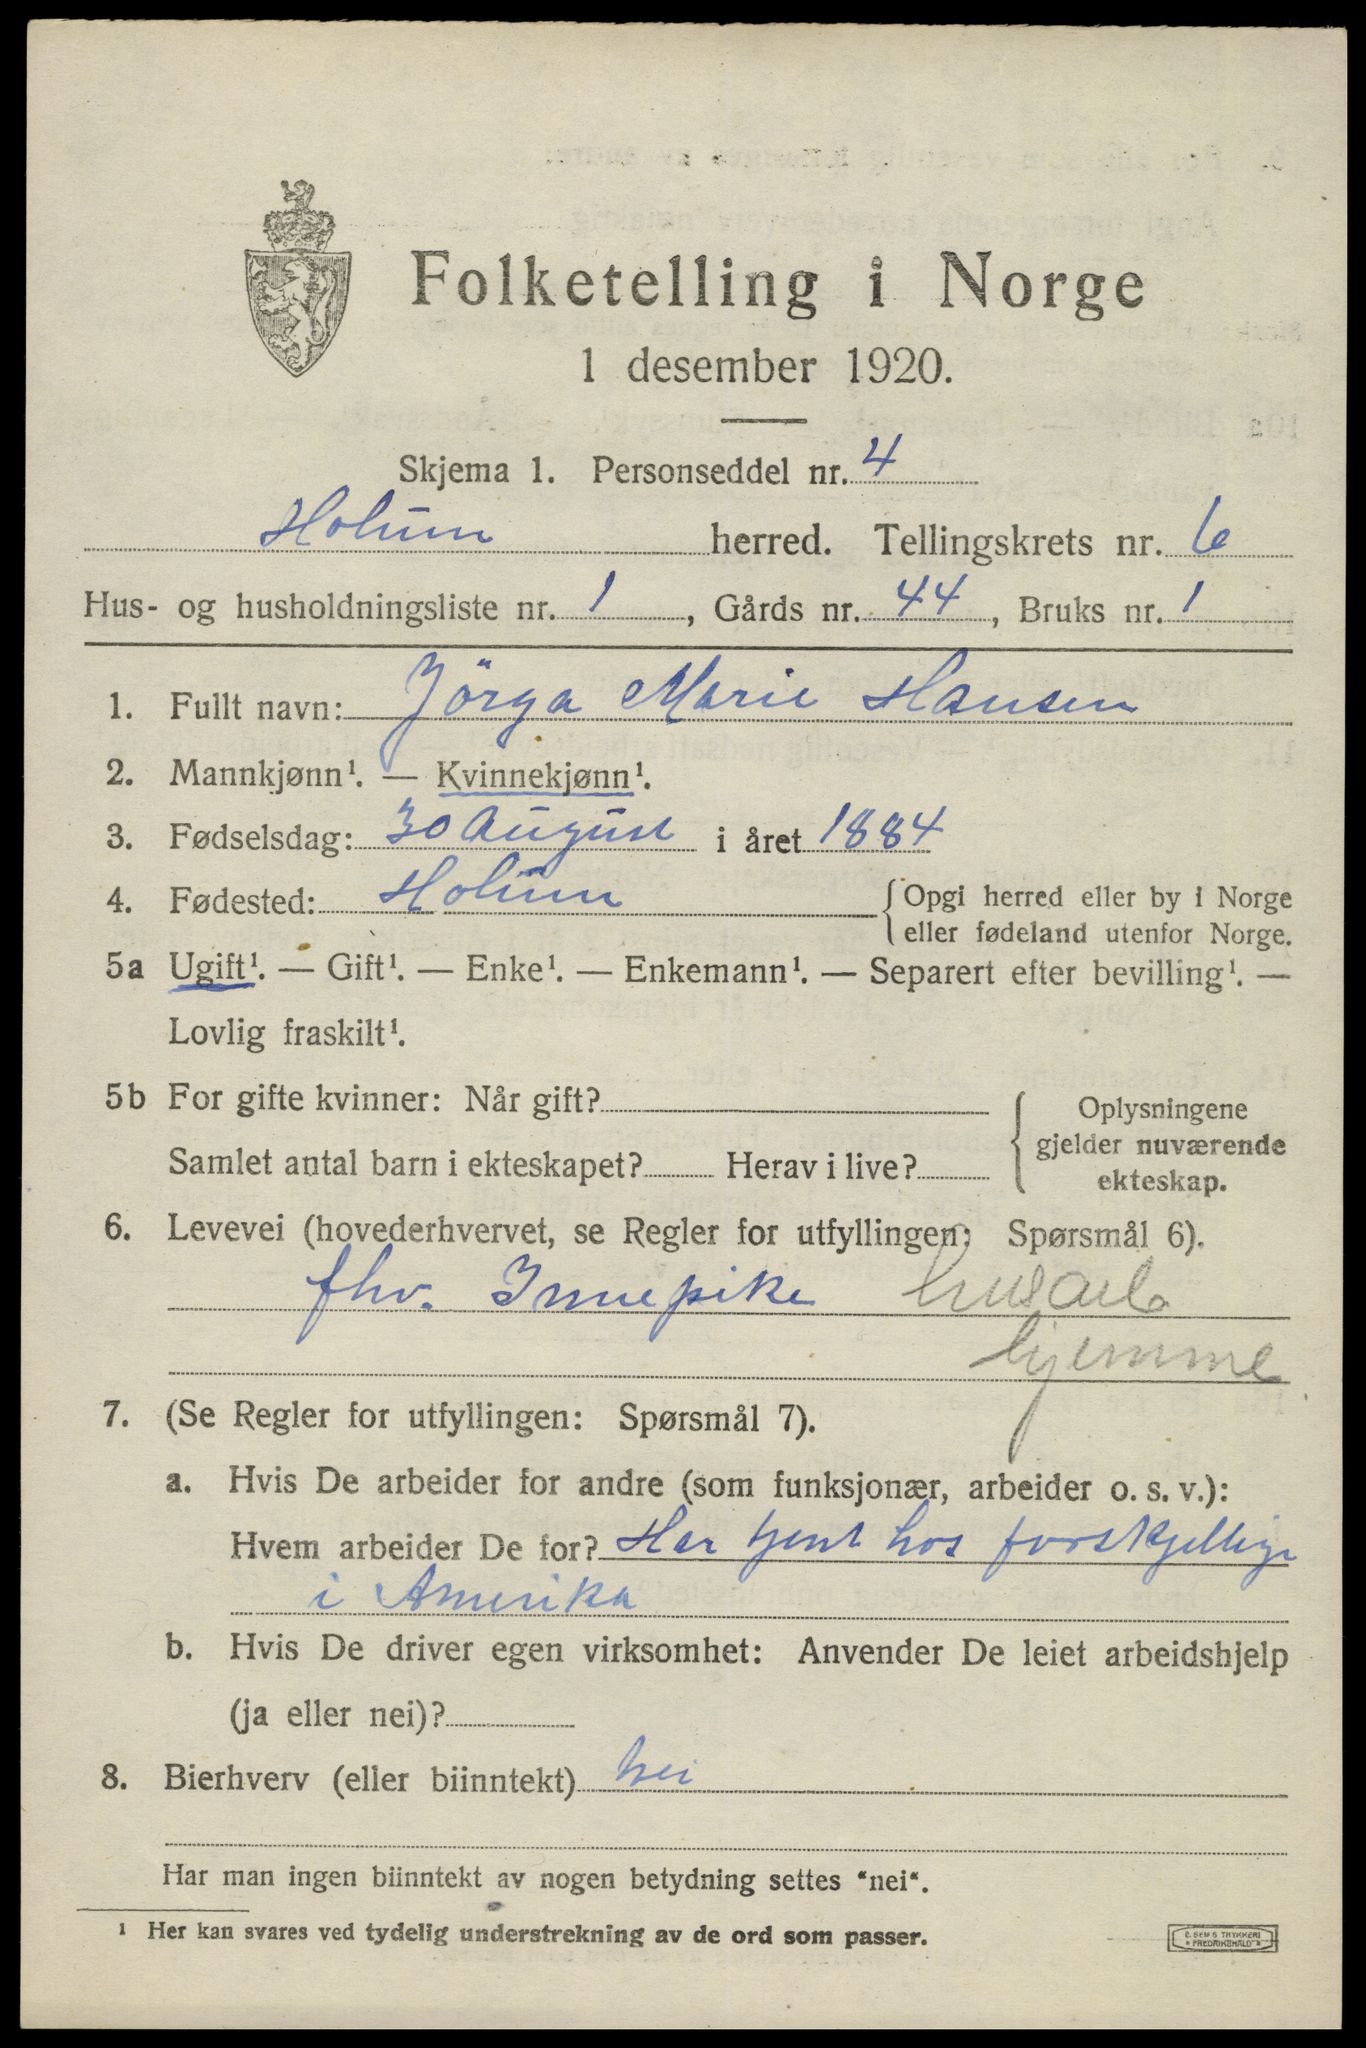 Folketelling i Norge
1 desember 1920.
Skjema 1. Personseddel nr. 4
Holum herred. Tellingskrets nr. 6
Hus- og husholdningsliste nr. 1, Gårds nr. 44, Bruks nr. 1
1. Fullt navn: Jörga Marie Hansen
2. Mannkjønn¹. — Kvinnekjønn¹.
3. Fødselsdag: 30 August i året 1884
4. Fødested: Holum {Opgi herred eller by i Norge
eller fødeland utenfor Norge.
5a Ugift¹. — Gift¹. — Enke¹. — Enkemann¹. — Separert efter bevilling¹. —
Lovlig fraskilt¹.
5b For gifte kvinner: Når gift?
Samlet antal barn i ekteskapet? Herav i live?
{Oplysningene
gjelder nuværende
ekteskap.
6. Levevei (hovederhvervet, se Regler for utfyllingen: Spørsmål 6).
fhv. Innepike husarb
hjemme
7. (Se Regler for utfyllingen: Spørsmål 7).
a. Hvis De arbeider for andre (som funksjonær, arbeider o. s. v.):
Hvem arbeider De for? Har tjent hos forskjellige
i Amerika
b. Hvis De driver egen virksomhet: Anvender De leiet arbeidshjelp
(ja eller nei)?
8. Bierhverv (eller biinntekt) nei
Har man ingen biinntekt av nogen betydning settes "nei".
¹ Her kan svares ved tydelig understrekning av de ord som passer.
E. SEM S TRYKKERI
FREDRIKSHALD